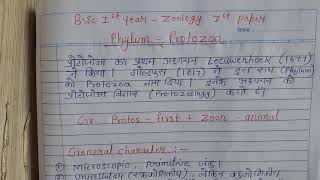 B.Sc Ist year - Zoology Ist paper
Phylum - Protozoa
दिनांक
प्रोटोजोआ का प्रथम अध्ययन Leeuwenhoek (1677)
ने किया। गोल्डफस (1817) ने इस संघ (Phylum)
को Protozoa नाम दिया। इनके अध्ययन को
प्रोटोजोआ विज्ञान (Protozoology) कहते हैं।
Gr. Protos - first + zoon - animal
General character :-
① Microscopic, जन्तु।